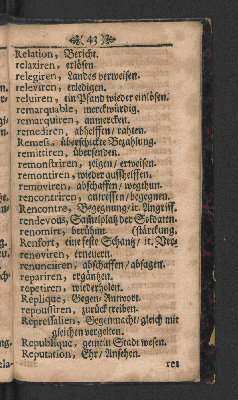 43
Relation, Bericht.
relaxiren, erlösen.
relegiren, Landes verweisen.
releviren, erledigen.
reluiren, ein Pfand wieder einlösen.
remarquable, merckwürdig.
remarquiren, anmercken.
remediren, abhelffen / rahten.
Remeß, überschickte Bezahlung.
remittiren, übersenden.
remonstriren, zeigen / erweisen.
remontiren, wieder auffhelffen.
removiren, abschaffen / wegthun.
rencontriren, antreffen / begegnen.
Rencontre, Begegnung / it. Angriff.
rendevous, Samelplatz der Soldaten.
renomirt, berühmt. (stärckung.
Renfort, eine feste Schantz / it. Ver-
renoviren, erneuern.
renunciiren, abschaffen / absagen.
repariren, ergäntzen.
repetiren, wiederholen.
Replique, Gegen-Antwort.
repoussiren, zurück treiben.
Repressalien, Gegenmacht / gleich mit
gleichen vergelten.
Republique, gemein Stadt wesen.
Reputation, Ehr / Ansehen.